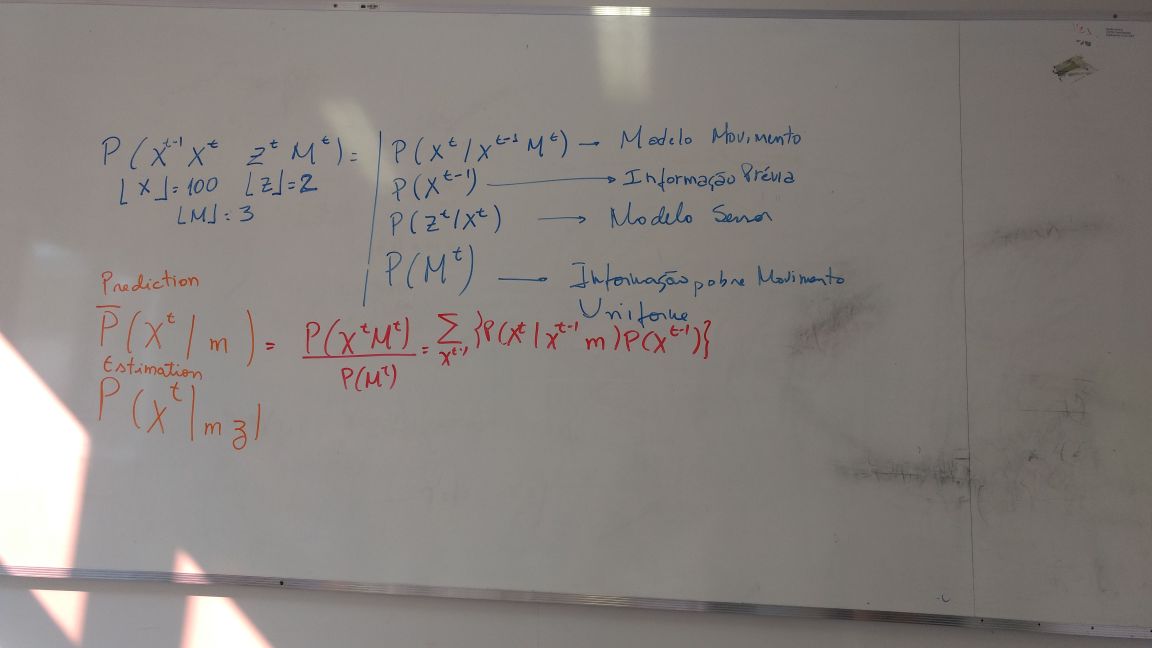 P(X^t-1 X^t Z^t M^t) = P(X^t / X^t-1 M^t) → Modelo Movimento
⌊X⌋ = 100 ⌊Z⌋ = 2 P(X^t-1) → Informação Prévia
⌊M⌋ : 3 P(Z^t / X^t) → Modelo Sensor
P(M^t) — Informação pobre Movimento
Uniforme
Prediction
P̅(X^t | m) = P(X^t M^t) / P(M^t) = ∑_X^t-1 {P(X^t / X^t-1 m) P(X^t-1)}
Estimation
P(X^t | m z)